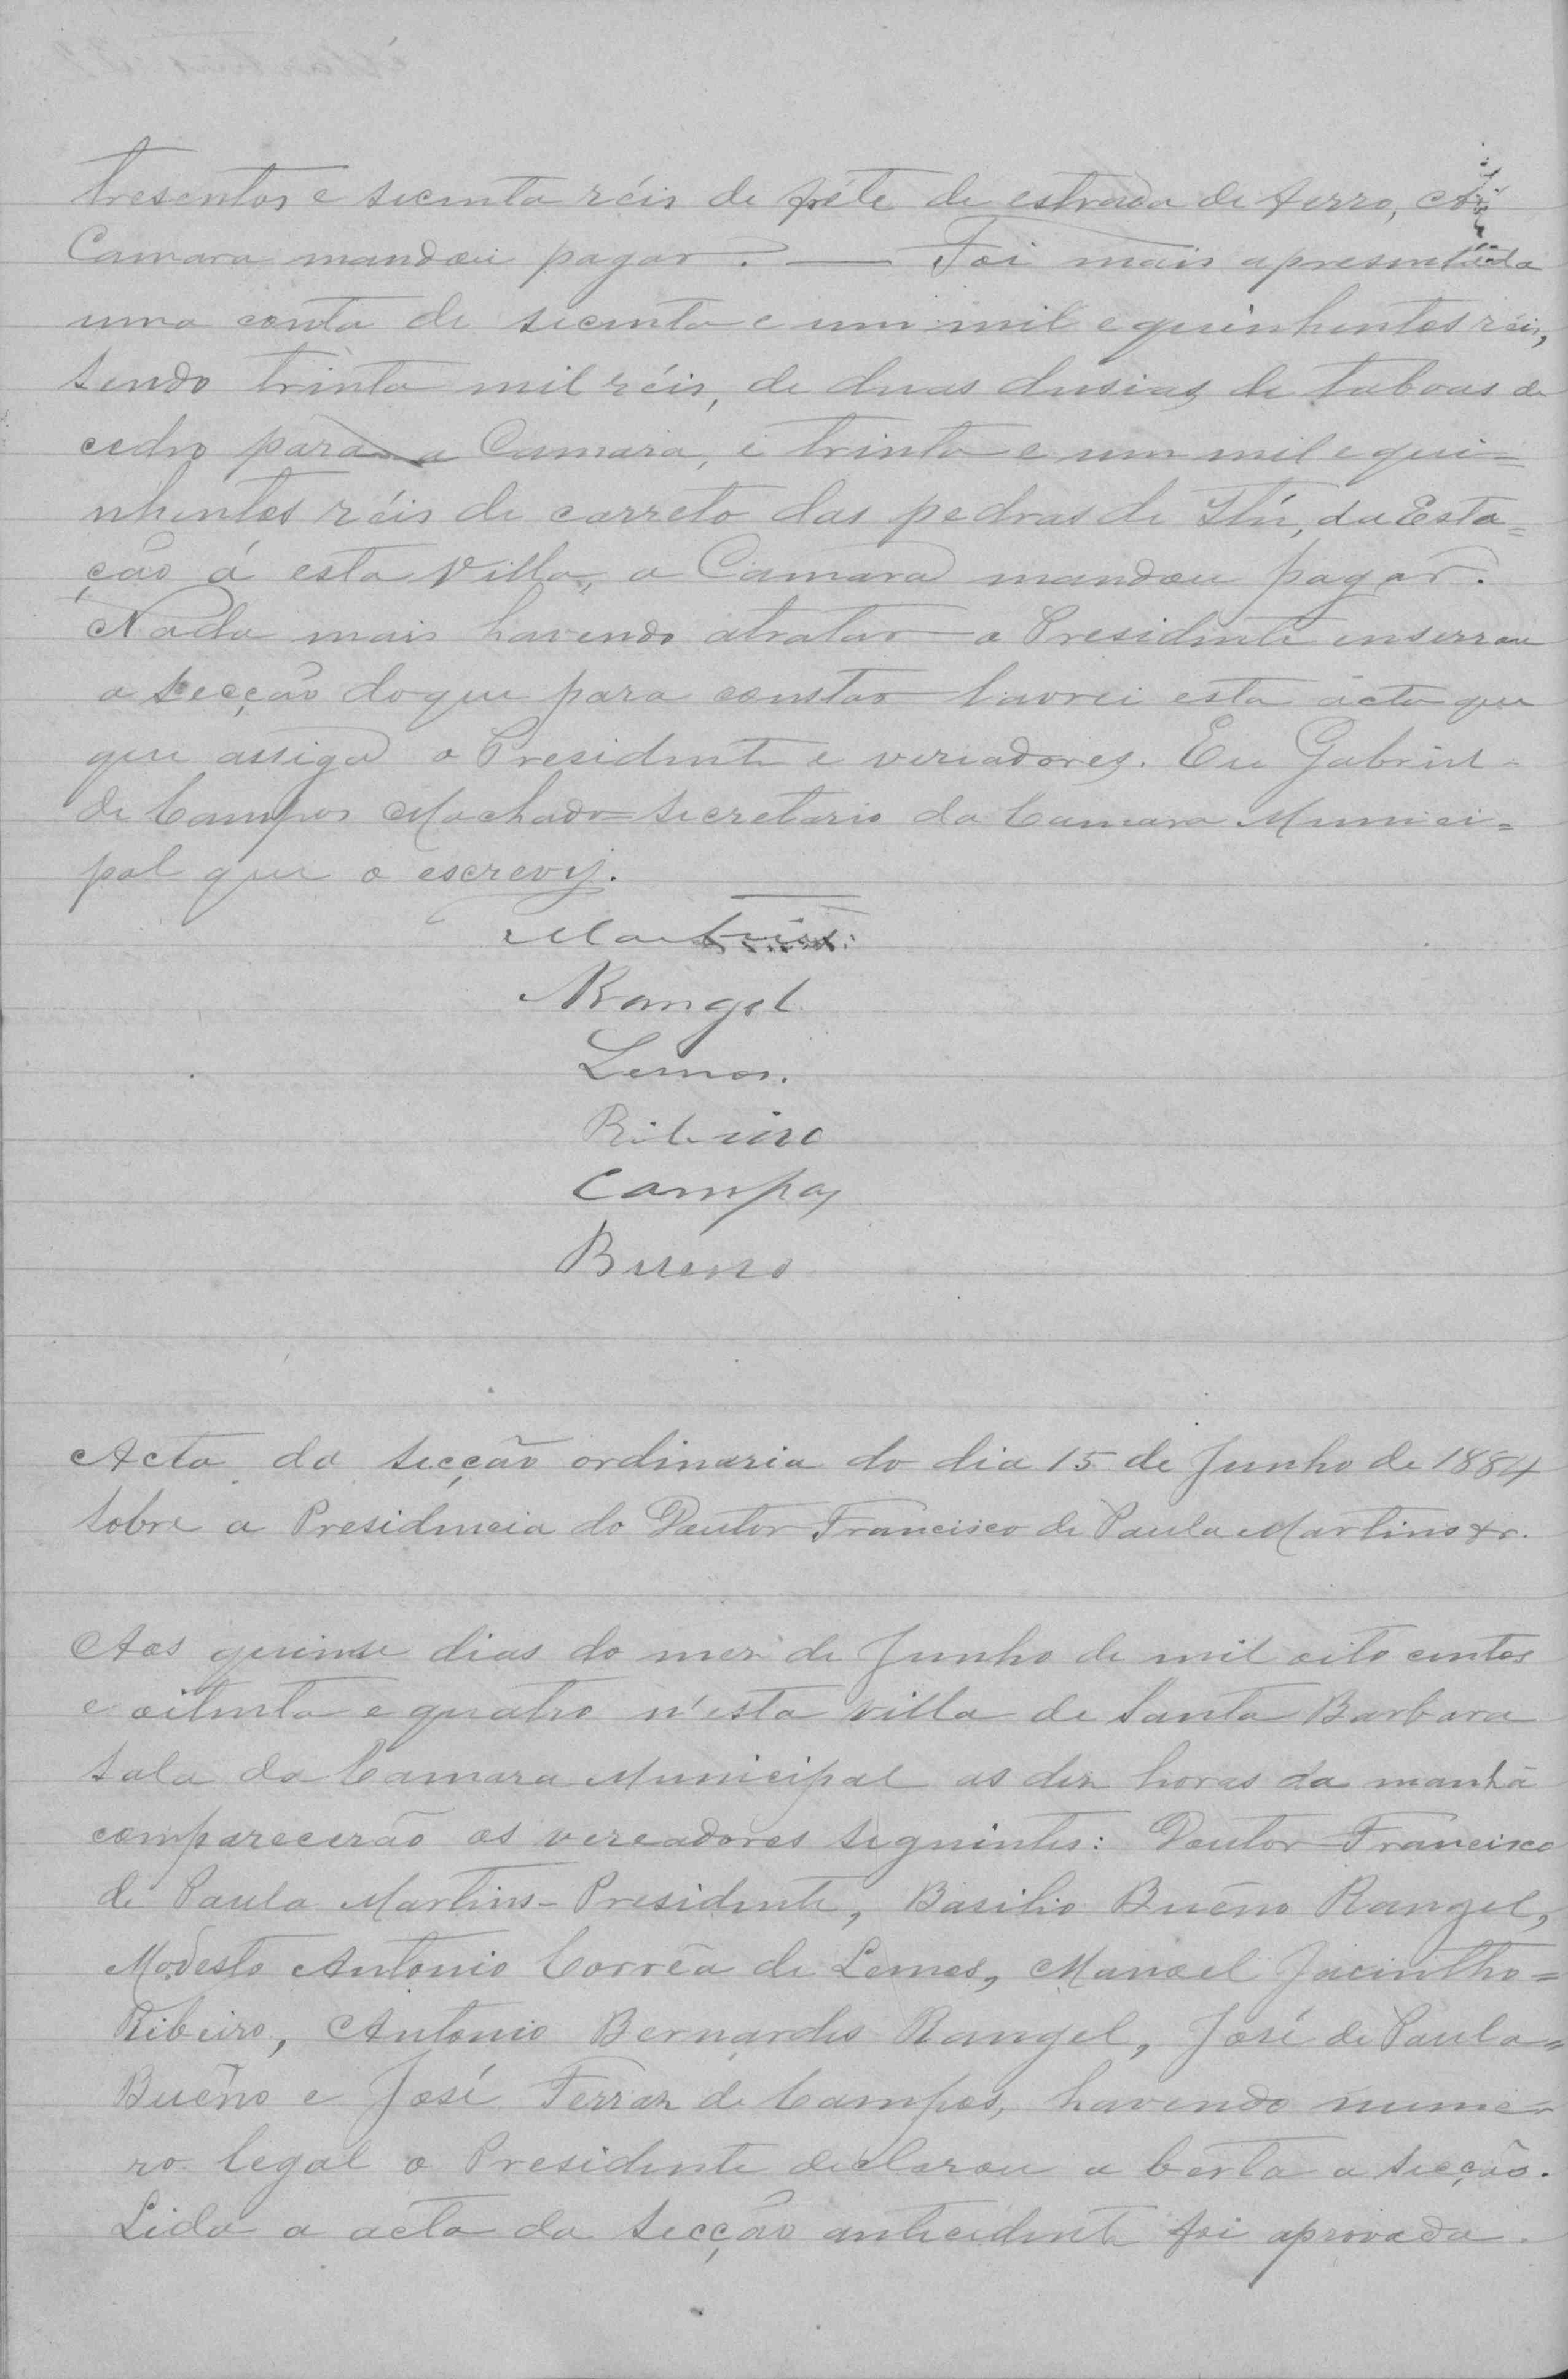 tresentos e secenta réis de fréte de estrada de ferro, e a
Camara mandou pagar. — Foi mais apresentada
uma conta de secenta e um mil e quinhentos réis,
sendo trinta mil réis, de duas dusias de taboas de
cedro para a Camara, e trinta e um mil e qui=
nhentos réis de carreto das pedras de Itú, da Esta=
ção á esta Villa, a Camara mandou pagar.
Nada mais havendo atratar o Presidente enserrou
a secção doque para constar lavrei esta acta que
que assigna o Presidente e vereadores. Eu Gabriel
de Campos Machado=secretario da Camara Munici=
pal que o escrevy.
Martins
Rangel
Lemos.
Ribeiro
Campos
Bueno
Acta da secção ordinaria do dia 15 de Junho de 1884
sobre a Presidencia do Doutor Francisco de Paula Martins &r.
Aos quinse dias do mez de Junho de mil oito centos
e oitenta e quatro n'esta villa de Santa Barbara
sala da Camara Municipal as dez horas da manhã
comparecerão os vereadores seguintes: Doutor Francisco
de Paula Martins-Presidente, Basilio Buêno Rangel,
Modesto Antonio Corrêa de Lemos, Manoel Jacintho=
Ribeiro, Antonio Bernardes Rangel, José de Paula=
Buêno e José Ferraz de Campos, havendo nume-
ro legal o Presidente declarou a berta a secção.
Lida a acta da secção antecedente foi aprovada.